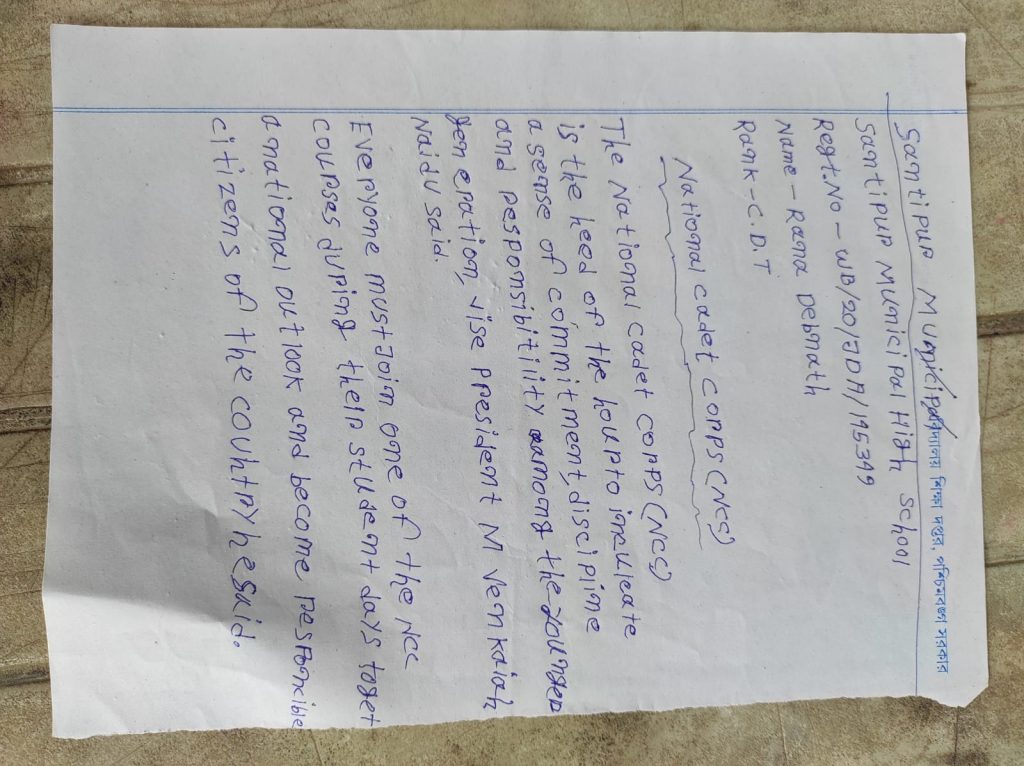 বিদ্যালয় শিক্ষা দপ্তর, পশ্চিমবঙ্গ সরকার
Santipur Municip
Santipur Municipal High School
Regt.No - WB/20/JDA/195399
Name - Rana Debnath
Rank - C.D.T
National cadet corps (NCS)
The National cadet corps (NCS)
is the heed of the hourto inculcate
a sense of commitment, discipline
and responsibitility among the younger
generation, vise president M Venkaiah
Naidu said.
Everyone must Join one of the Ncc
courses during their student days toget
a national outlook and become responxible
citizens of the country he said.